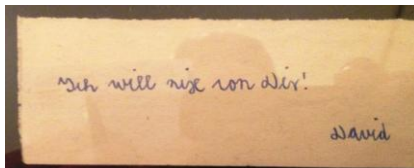 Ich will nix von Dir!
David